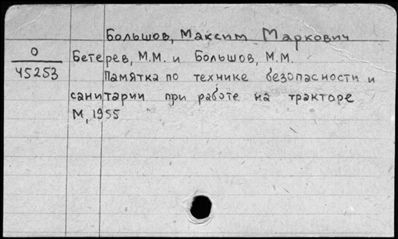 Большов, Максим Маркович
О
45253
Бетерев, М.М. и Большов, М.М.
Памятка по технике безопасности и
санитарии при работе на тракторе
М, 1955